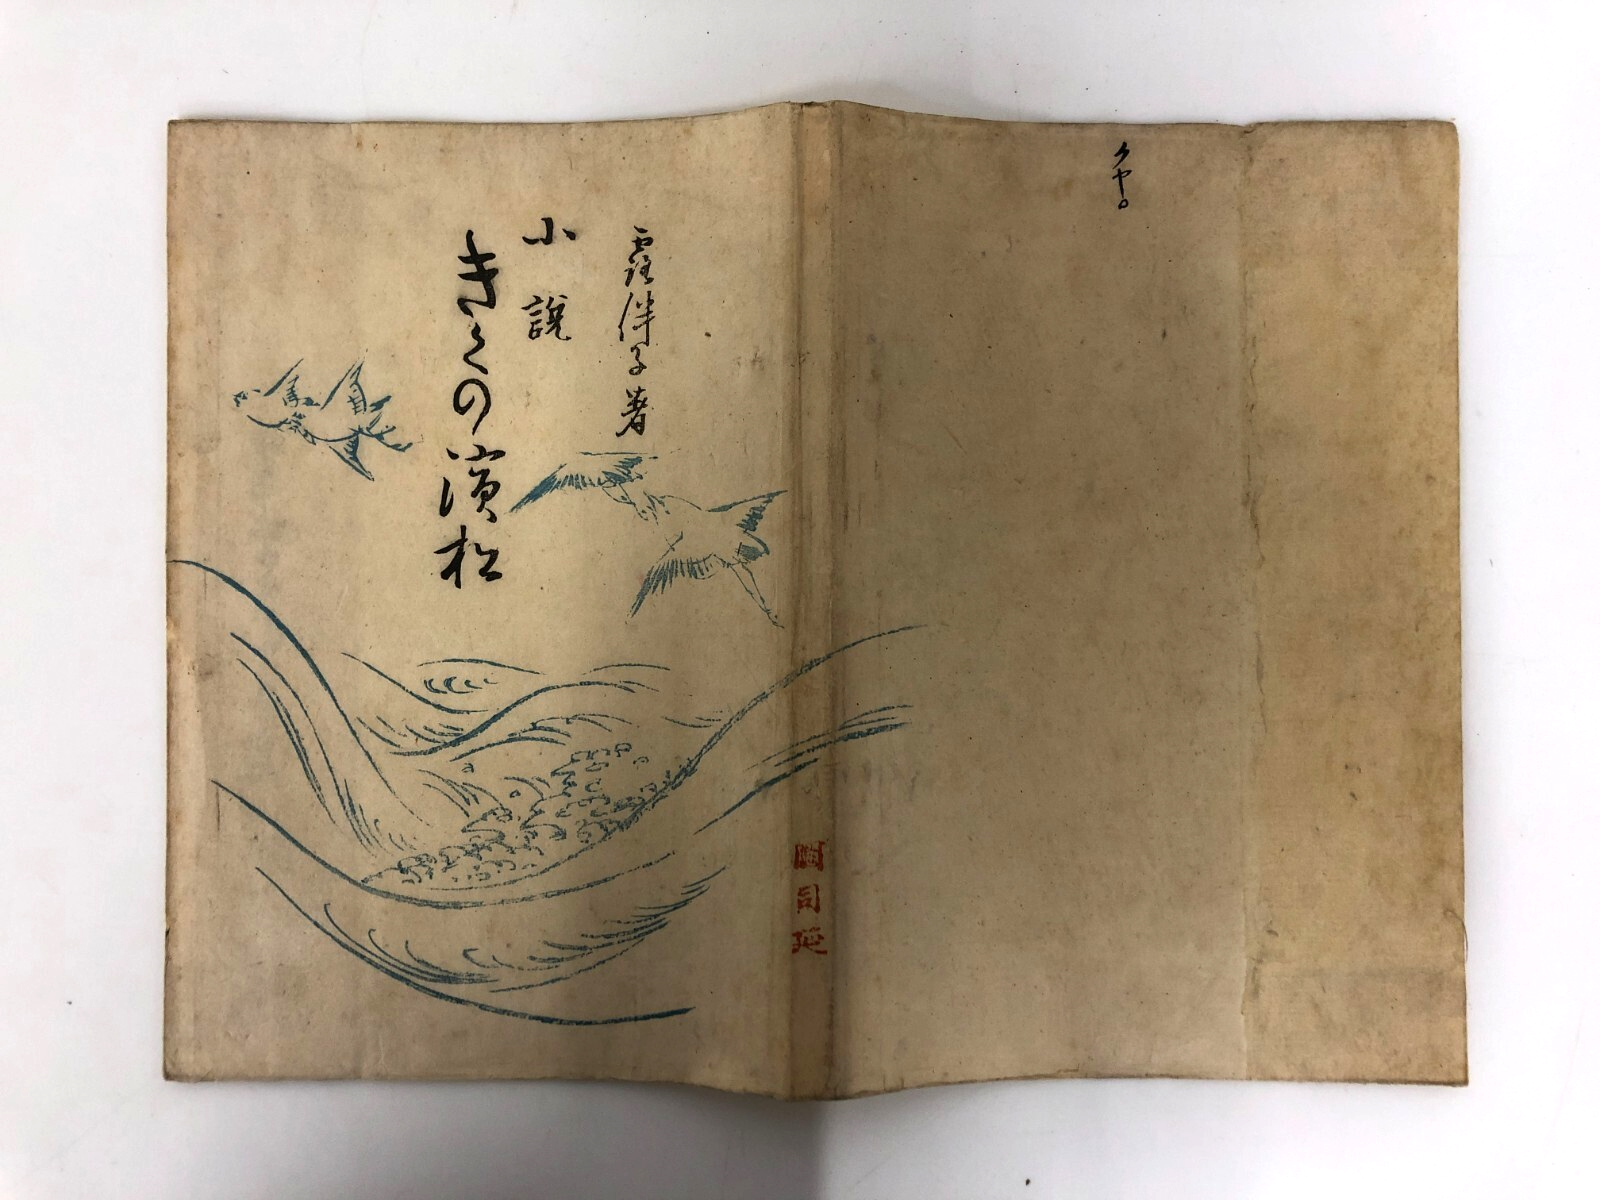 露伴子著
小説
きくの濱松
クヤ。